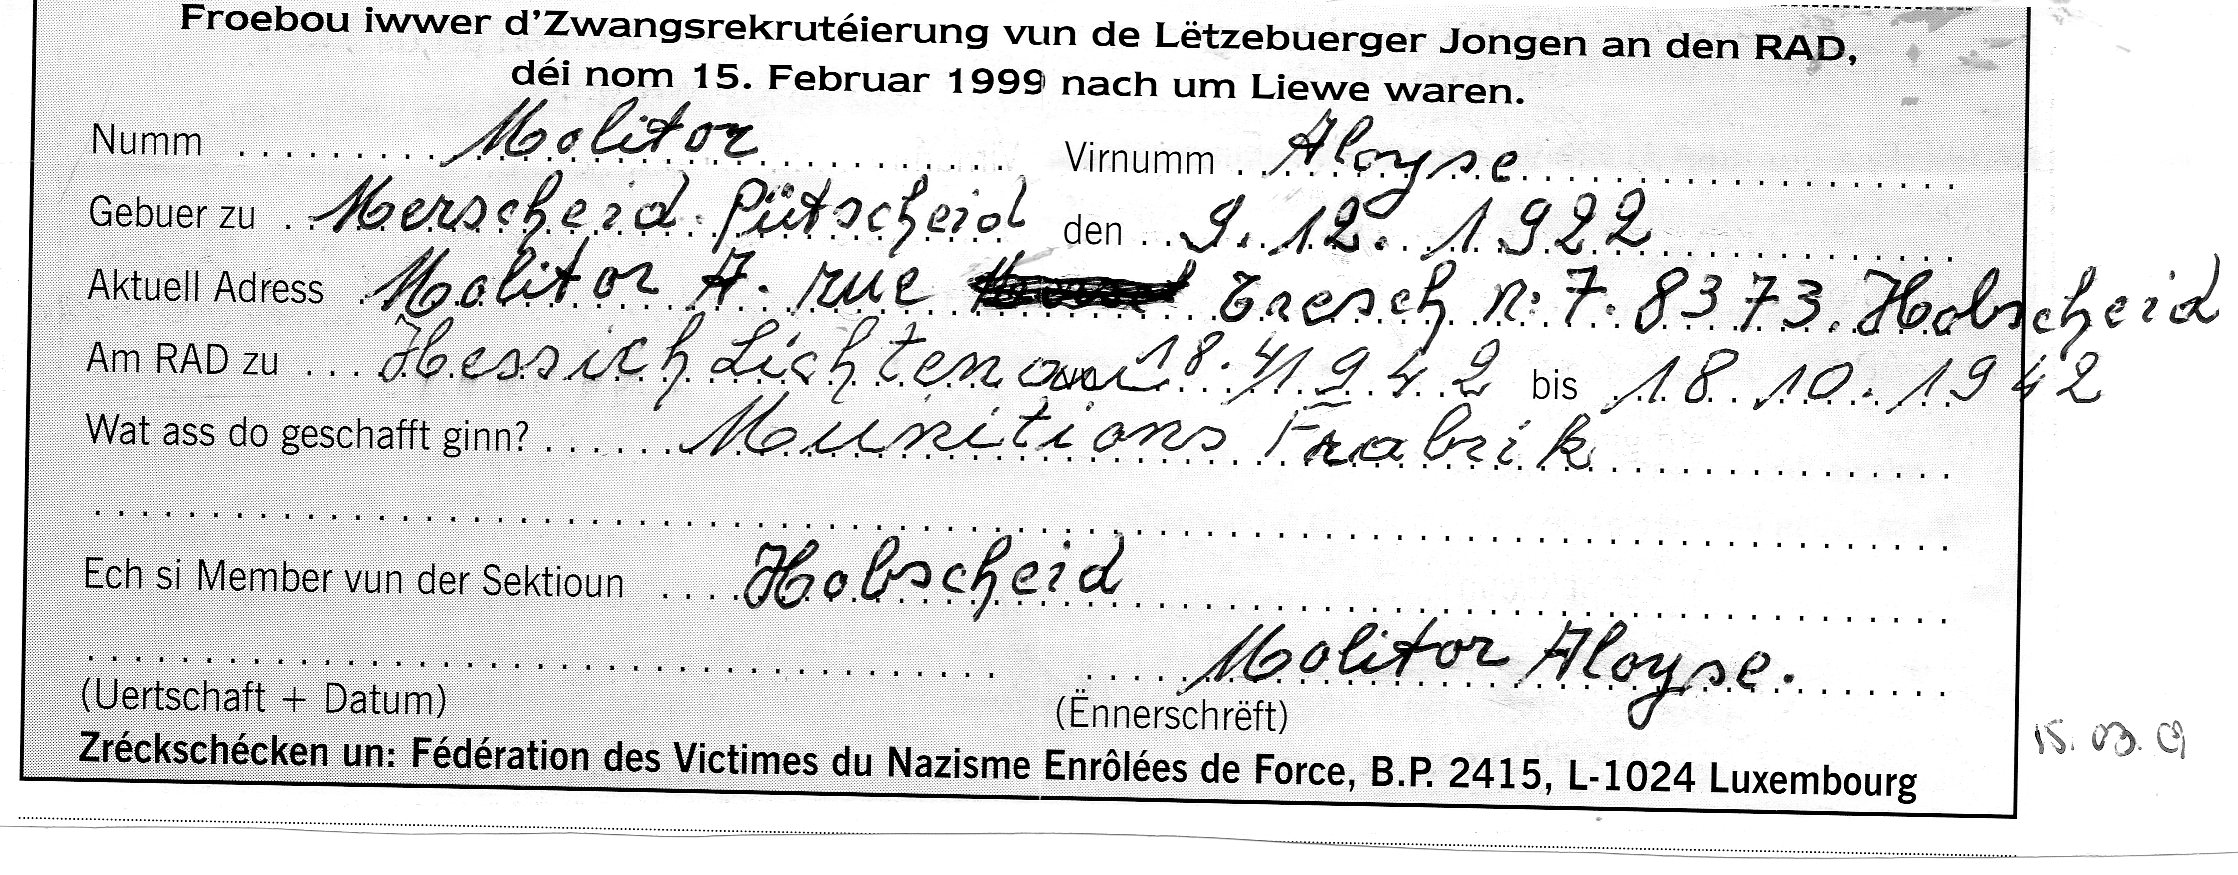 Froebou iwwer d'Zwangsrekrutéierung vun de Lëtzebuerger Jongen an den RAD,
déi nom 15. Februar 1999 nach um Liewe waren.
Numm Molitor Virnumm Aloyse
Gebuer zu Merscheid Pütscheid den 9.12.1922
Aktuell Adress Molitor A. rue Tresch n: 7. 8373. Hobscheid
Am RAD zu Hessich Lichtenau 18.4 1942 bis 18.10.1942
Wat ass do geschafft ginn? Munitions Frabrik
Ech si Member vun der Sektioun Hobscheid
Molitor Aloyse.
(Uertschaft + Datum) (Ënnerschrëft)
Zréckschécken un: Fédération des Victimes du Nazisme Enrôlées de Force, B.P. 2415, L-1024 Luxembourg
15. 03.